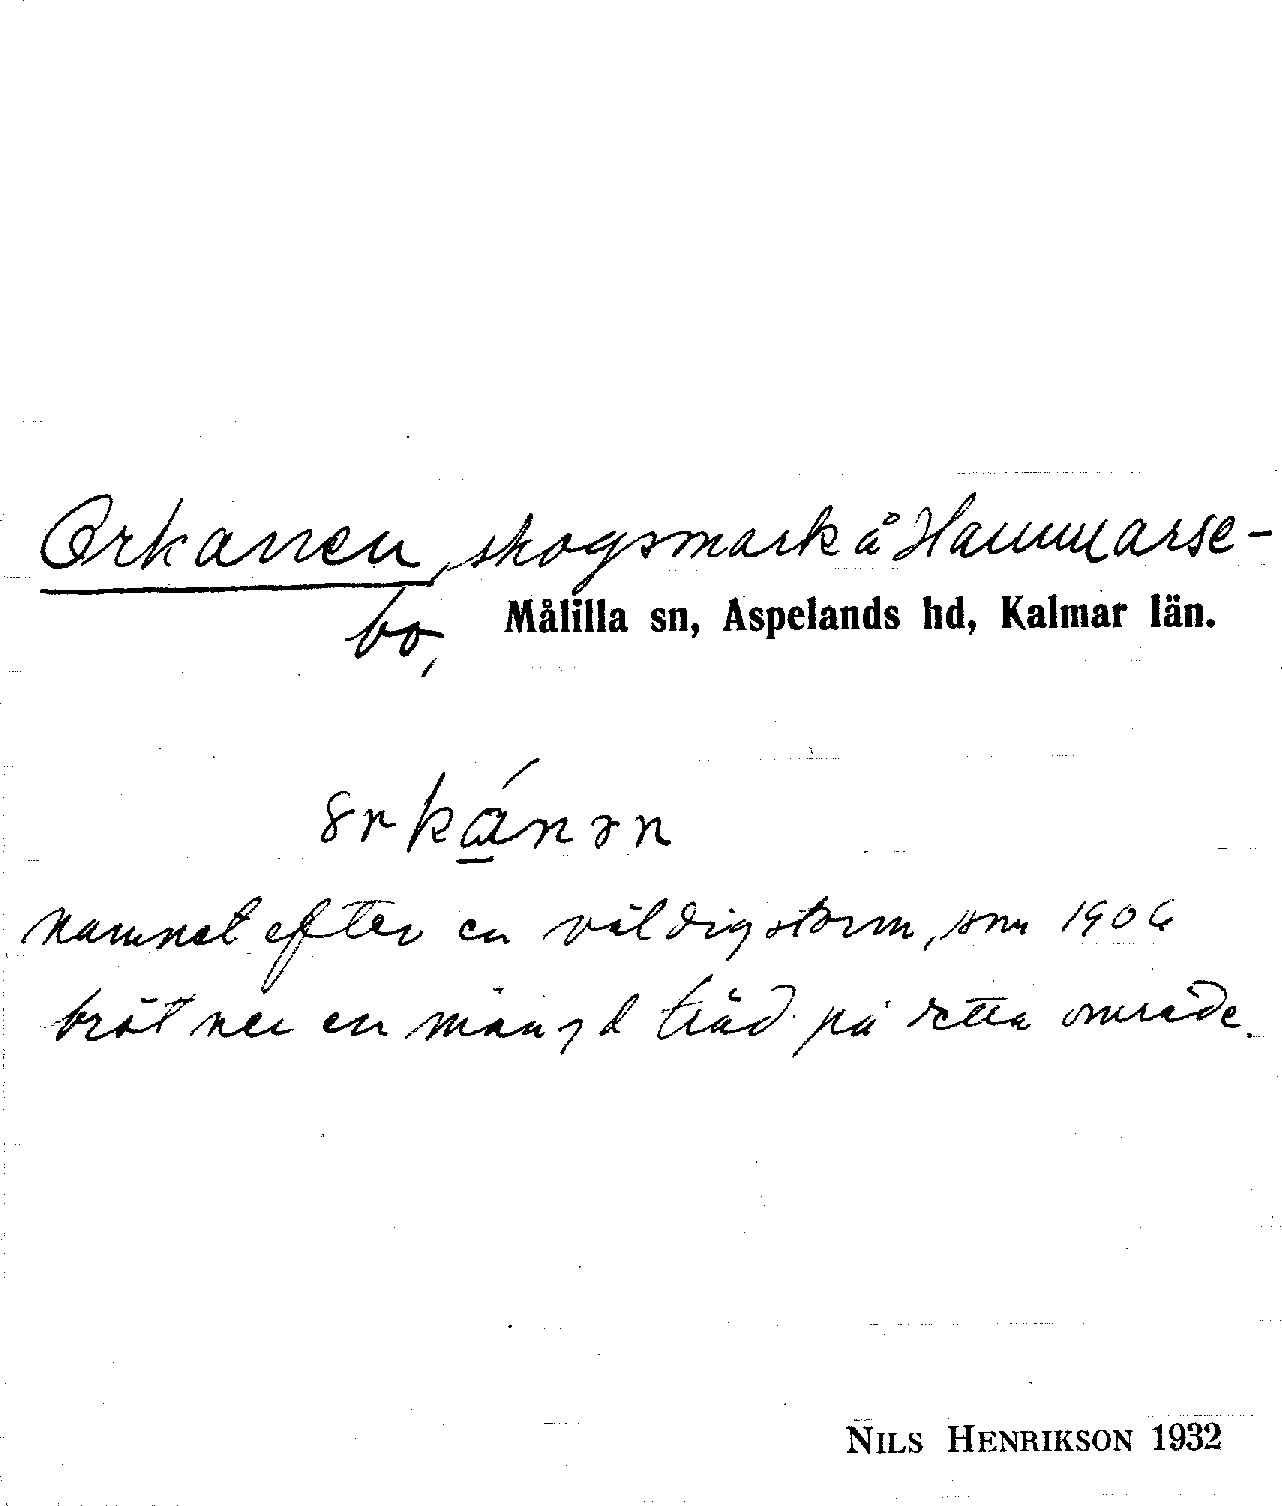 Orkanen, skogsmark å Hammarse-
bo, Målilla sn, Aspelands hd, Kalmar län.
orkánən
namnet efter en väldig storm, som 1906
bröt ner en mängd träd på detta område.
NILS HENRIKSON 1932